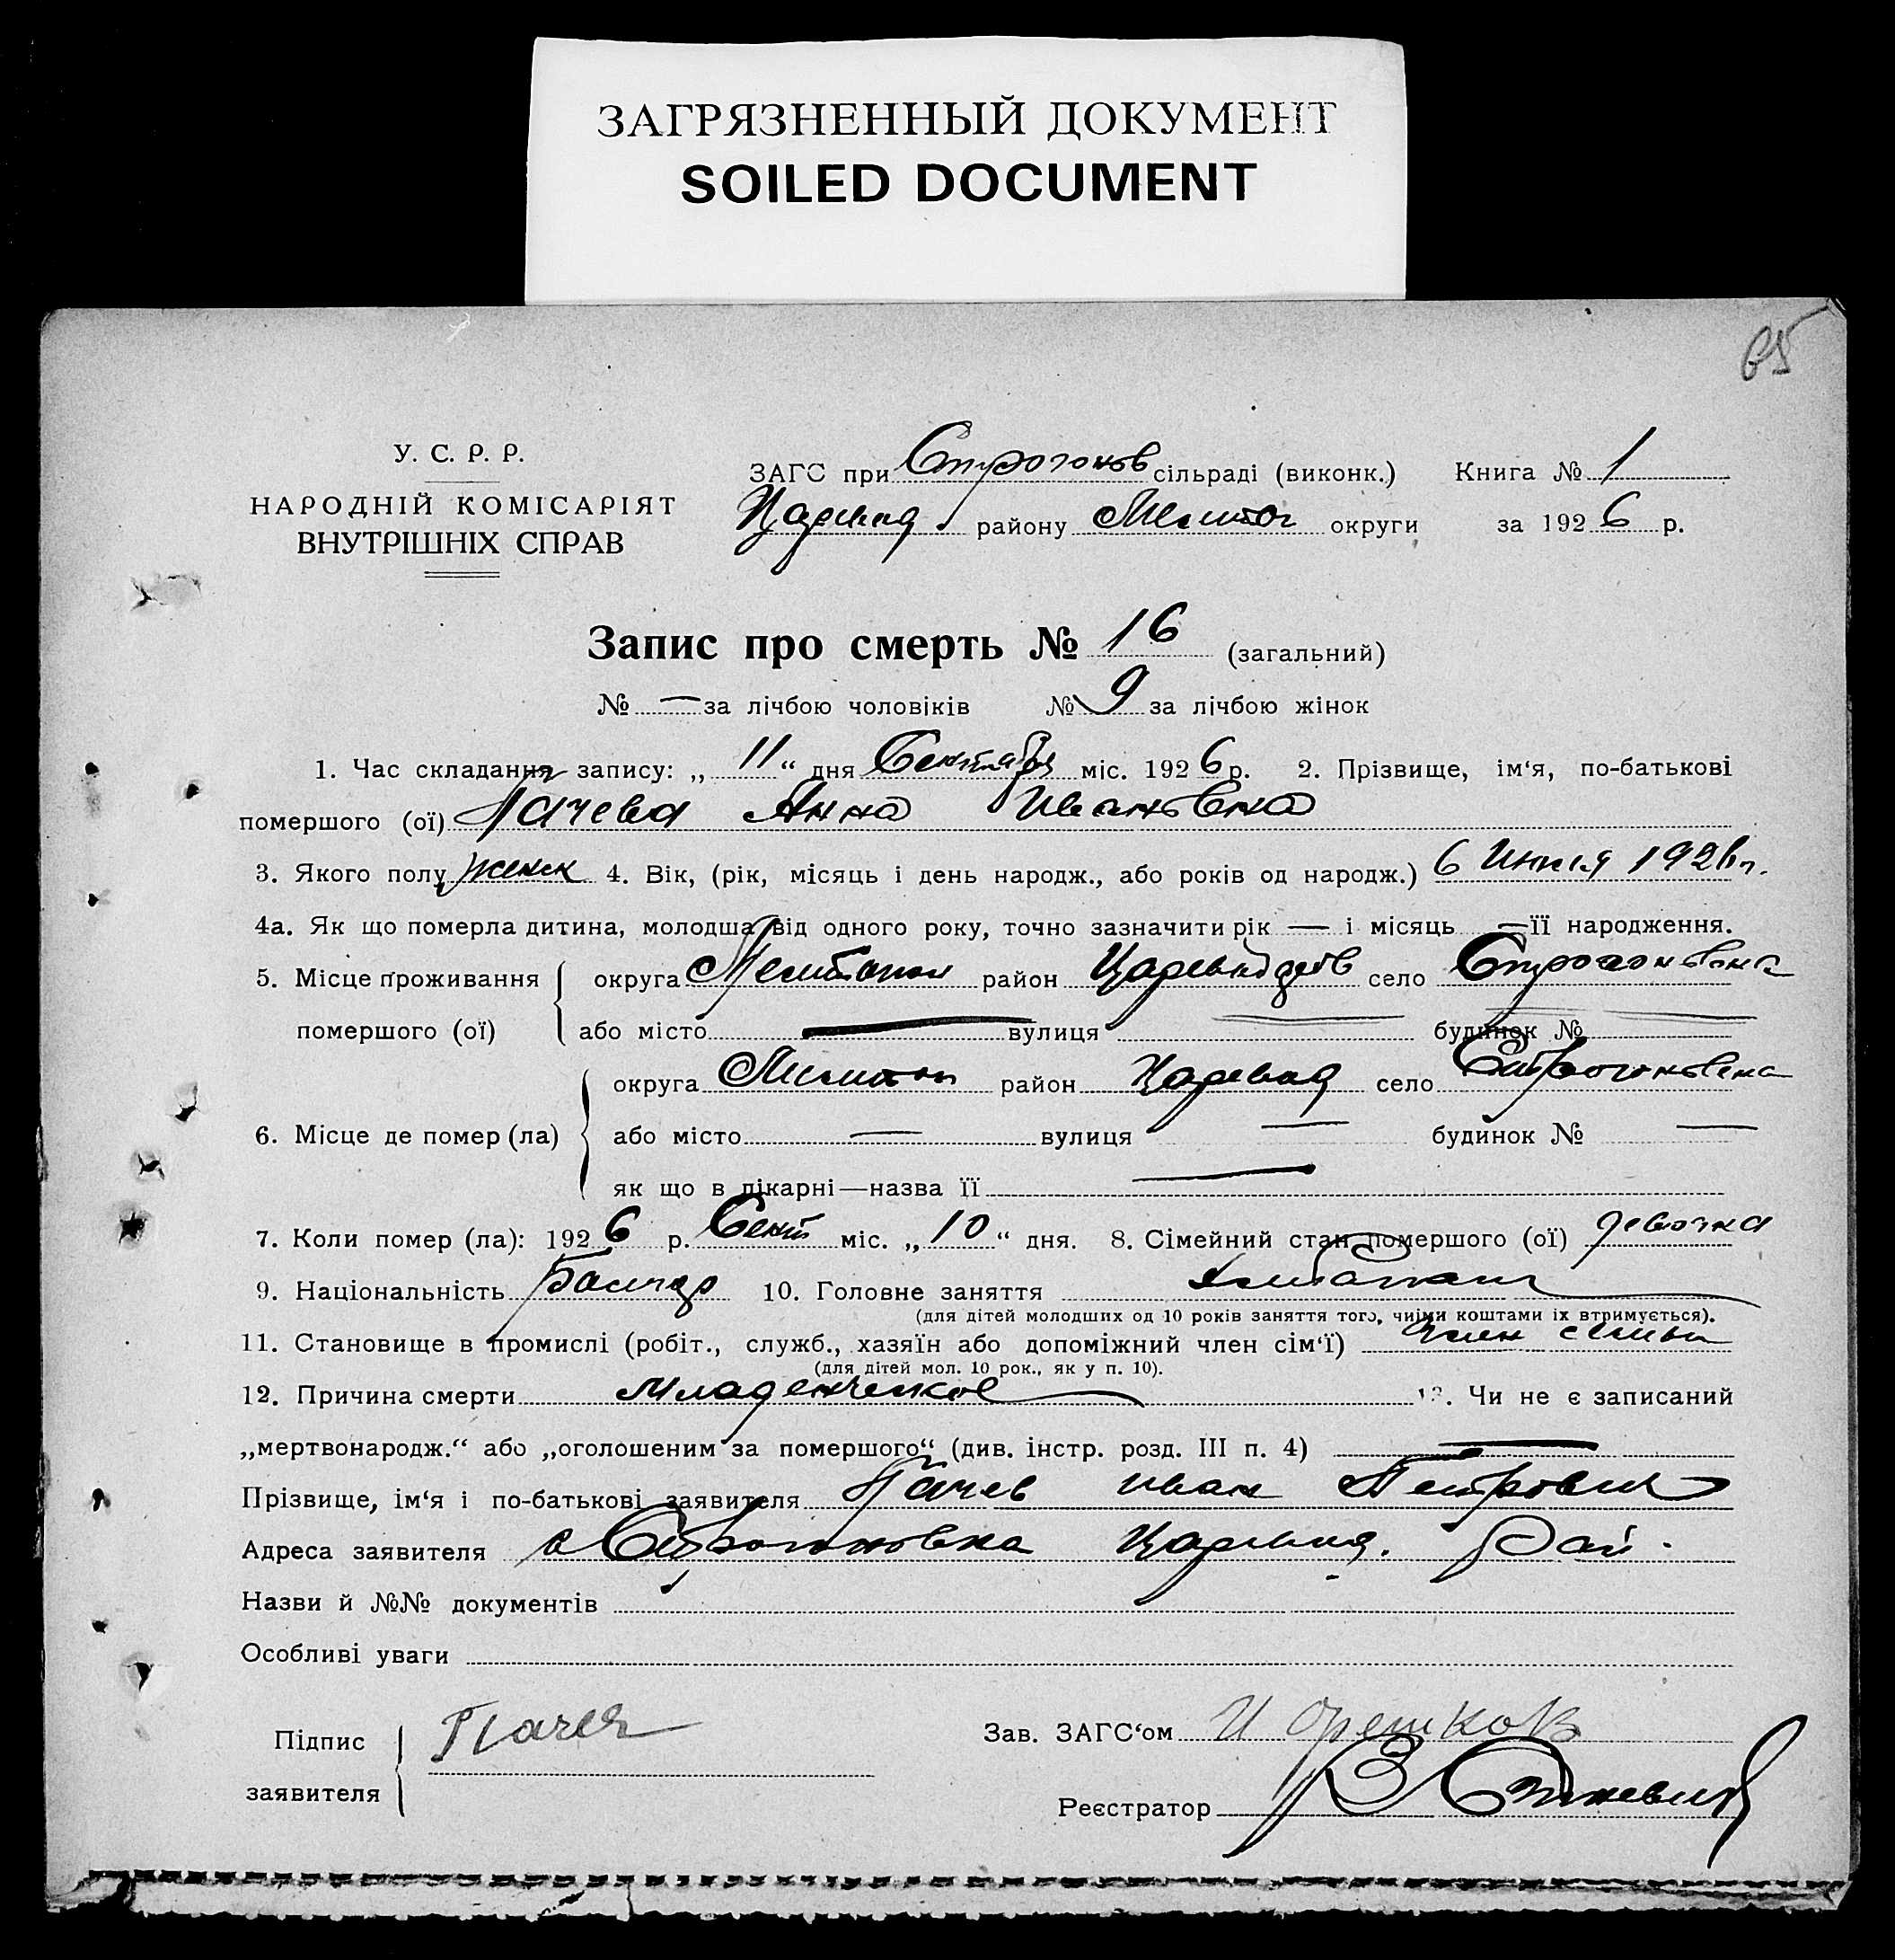 ЗАГРЯЗНЕННЫЙ ДОКУМЕНТ
SOILED DOCUMENT
65
У. С. Р. Р.
НАРОДНІЙ КОМІСАРІЯТ
ВНУТРІШНІХ СПРАВ
ЗАГС при Строгонов сільраді (виконк.) Книга № 1
району Мелитоп округи за 1926 р.
Запис про смерть № 16 (загальний)
№ — за лічбою чоловіків № 9 за лічбою жінок
1. Час складання запису: „ 11 “ дня Сентября міс. 1926 р. 2. Прізвище, ім‘я, по-батькові
помершого (ої) Пачева Анна Ивановна
3. Якого полу женск 4. Вік, (рік, місяць і день народж., або років од народж.) 6 1926 г.
4а. Як що померла дитина, молодша від одного року, точно зазначити рік — і місяць — її народження.
5. Місце проживання округа Мелитопол район село Строгоновка
помершого (ої) або місто — вулиця — будинок № —
округа Мелитоп район Царевод село Строгоновка
6. Місце де помер (ла) або місто — вулиця — будинок № —
як що в лікарні—назва її —
7. Коли помер (ла): 1926 р. Сент міс. „ 10 “ дня. 8. Сімейний стан помершого (ої) девочка
9. Національність Болгар 10. Головне заняття
(для дітей молодших од 10 років заняття того, чиїми коштами їх втримується).
11. Становище в промислі (робіт., служб., хазяїн або допоміжний член сім‘ї) член семьи
(для дітей мол. 10 рок., як у п. 10).
12. Причина смерти Младенческое 13. Чи не є записаний
„мертвонародж.“ або „оголошеним за помершого“ (див. інстр. розд. III п. 4) —
Прізвище, ім‘я і по-батькові заявителя Пачев Иван Петрович
Адреса заявителя с Строгоновка Царевод. Рай.
Назви й №№ документів
Особливі уваги
Підпис
заявителя
Пачев
Зав. ЗАГС‘ом И Орешков
Реєстратор